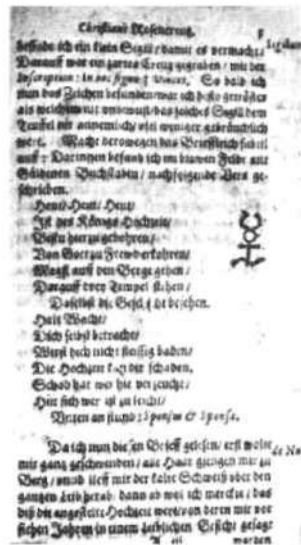 Christiani Rosencreutz. 5
befinde ich ein klein Sigill / damit es vermacht /
Darauff war ein zartes Creutz gegraben / mit der
Inscription: In hoc signo † vinces. So bald ich
nun das Zeichen befunden / war ich desto getröster
als welchem nit unbewust / das solches Sigill dem
Teuffel nit annemlich / viel weniger gebräuchlich
were. Macht derowegen das Brieflein subtil
auff: Darinnen befand ich im blawen Feldt mit
Güldenen Buchstaben / nachfolgende Vers ge-
schrieben.
Heut / Heut / Heut /
Ist des Königs Hochzeit /
Bistu hierzu gebohren /
Von Gott zu Frewd erkohren /
Magst auff den Berge gehen /
Darauff drey Tempel stehen /
Daselbst die Geschicht besehen.
Halt Wacht /
Dich selbst betracht /
Wirst dich nicht fleissig baden /
Die Hochzeit kan dir schaden.
Schad hat wer hie verzeucht /
Hüt sich wer ist zu leicht /
Unten an stund: Sponsus & Sponsa.
Da ich nun diesen Brieff gelesen / erst wolte
mir gantz geschwinden / alle Haar giengen mir zu
Berg / unnd lieff mir der kalte Schweiß uber den
gantzen Leib herab: dann ob wol ich mercket / das
diß die angestelte Hochzeit were / von deren mir vor
sieben Jahren in einem Leiblichen Gesicht gesagt
A iii worden